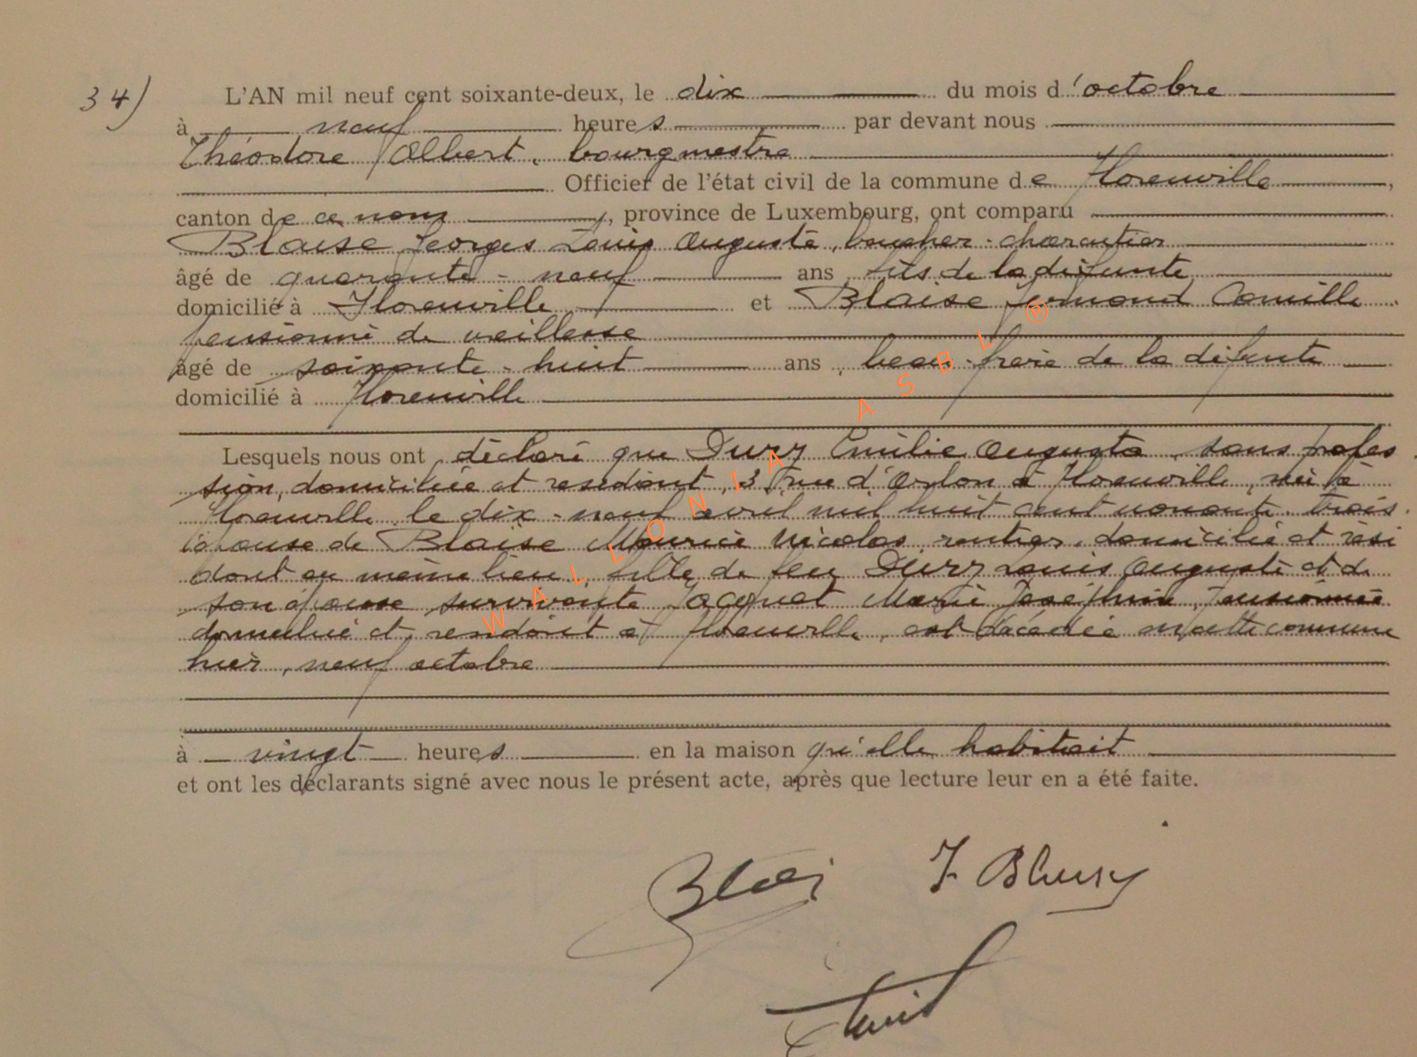 34) L'AN mil neuf cent soixante-deux, le dix du mois d'octobre
à neuf heures par devant nous
Théodore Albert, bourgmestre
Officier de l'état civil de la commune de Florenville,
canton de ce nom, province de Luxembourg, ont comparu
Blaise Georges Louis Auguste, boucher-charcutier
âgé de quarante-neuf ans, fils de la défunte,
domicilié à Florenville et Blaise Edmond Camille
pensionné de vieillesse
âgé de soixante-huit ans, beau-frère de la défunte
domicilié à Florenville
Lesquels nous ont déclaré que Durz Emilie Augusta, sans profes
sion, domiciliée et résidant, 3, rue d'Arlon à Florenville, née à
Florenville le dix-neuf avril mil huit cent nonante-trois.
épouse de Blaise Maurice Nicolas, rentier, domicilié et rési
dant au même lieu, fille de feu Durz Louis Auguste et de
son épouse survivante Jacquet Marie Josephine, pensionnée
domiciliée et résidant à Florenville, est décédée en cette commune
hier, neuf octobre
à vingt heures en la maison qu'elle habitait
et ont les déclarants signé avec nous le présent acte, après que lecture leur en a été faite.
WALLONIA ASBL ®